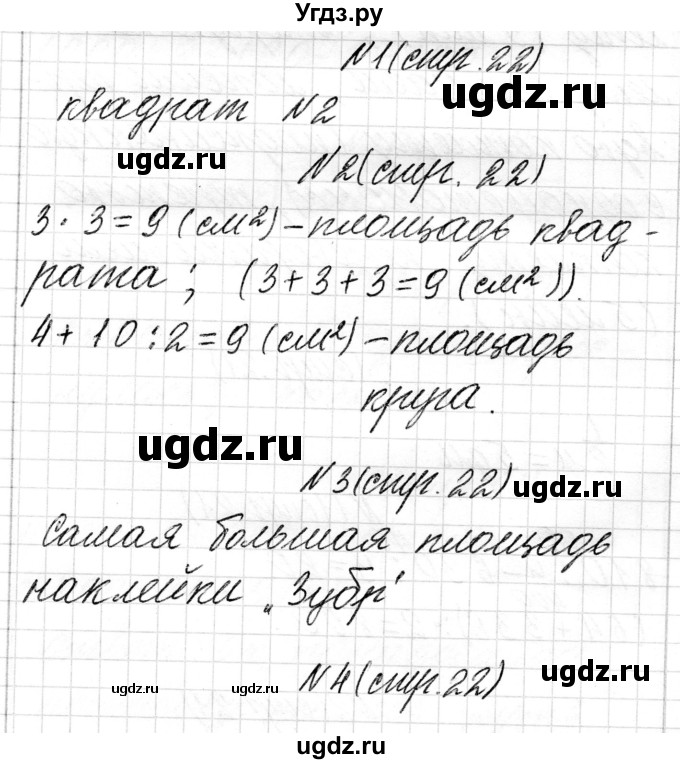 Угдз.ру
N1(стр.22)
ugdz.ru
квадрат N2
ugdz.ru
N2(стр. 22)
3 · 3 = 9 (см²) – площадь квад -
рата ; (3 + 3 + 3 = 9 (см²)).
4 + 10 : 2 = 9 (см²) – площадь
круга.
ugdz.ru
N3(стр.22)
ugdz.ru
Самая большая площадь
наклейки „Зубр"
N4(стр.22)
ugdz.ru
ugdz.ru
ugdz.ru
ugdz.ru